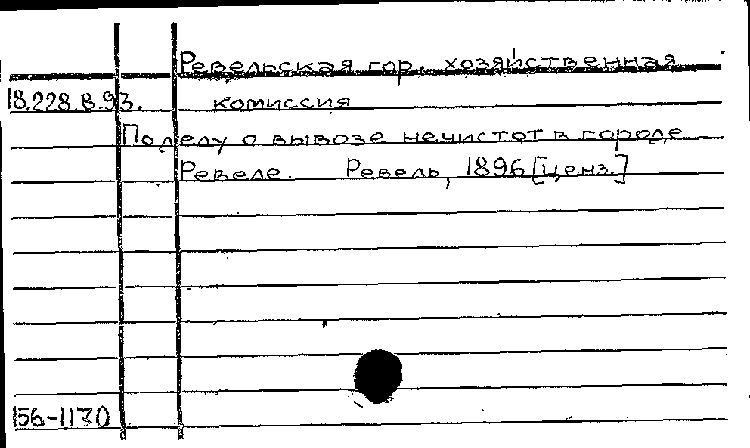 Ревельская гор. хозяйственная
18.228.8.93. комиссия
По делу о вывозе нечистот в городе
Ревеле. Ревель, 1896 [ценз.]
56-1170